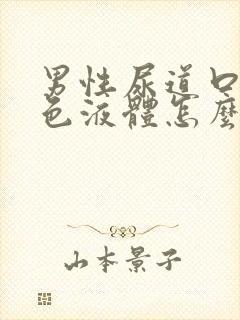 男性尿道口
色液體怎麼
山本景子